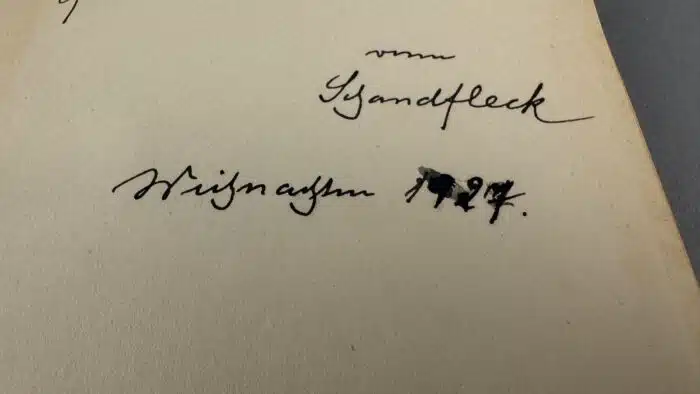 vom
Schandfleck
Weihnachten 1927.